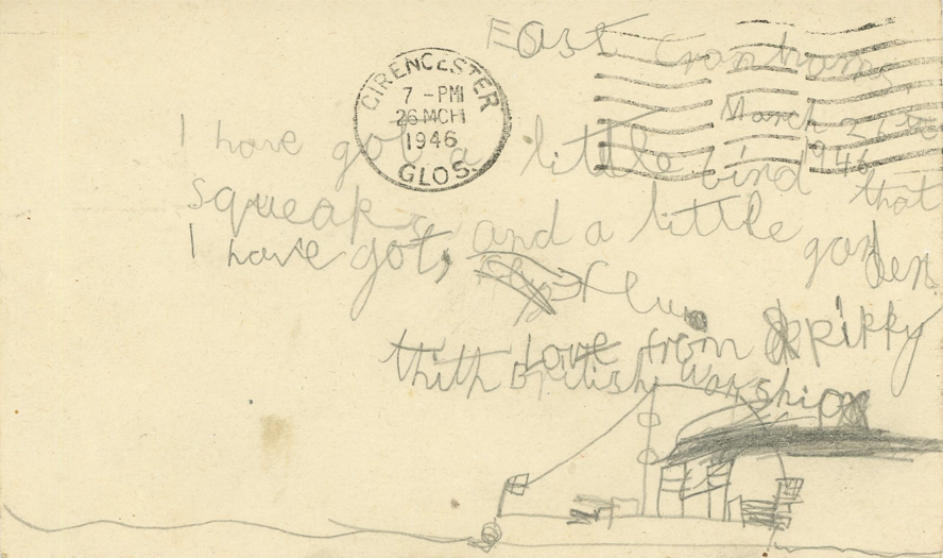 East
CIRENCESTER
7-PM
26 MCH
1946
GLOS.
March 26
1946
I have got a little bird that
squeaks and a little garden
I have got,
Love from
thith British Warship